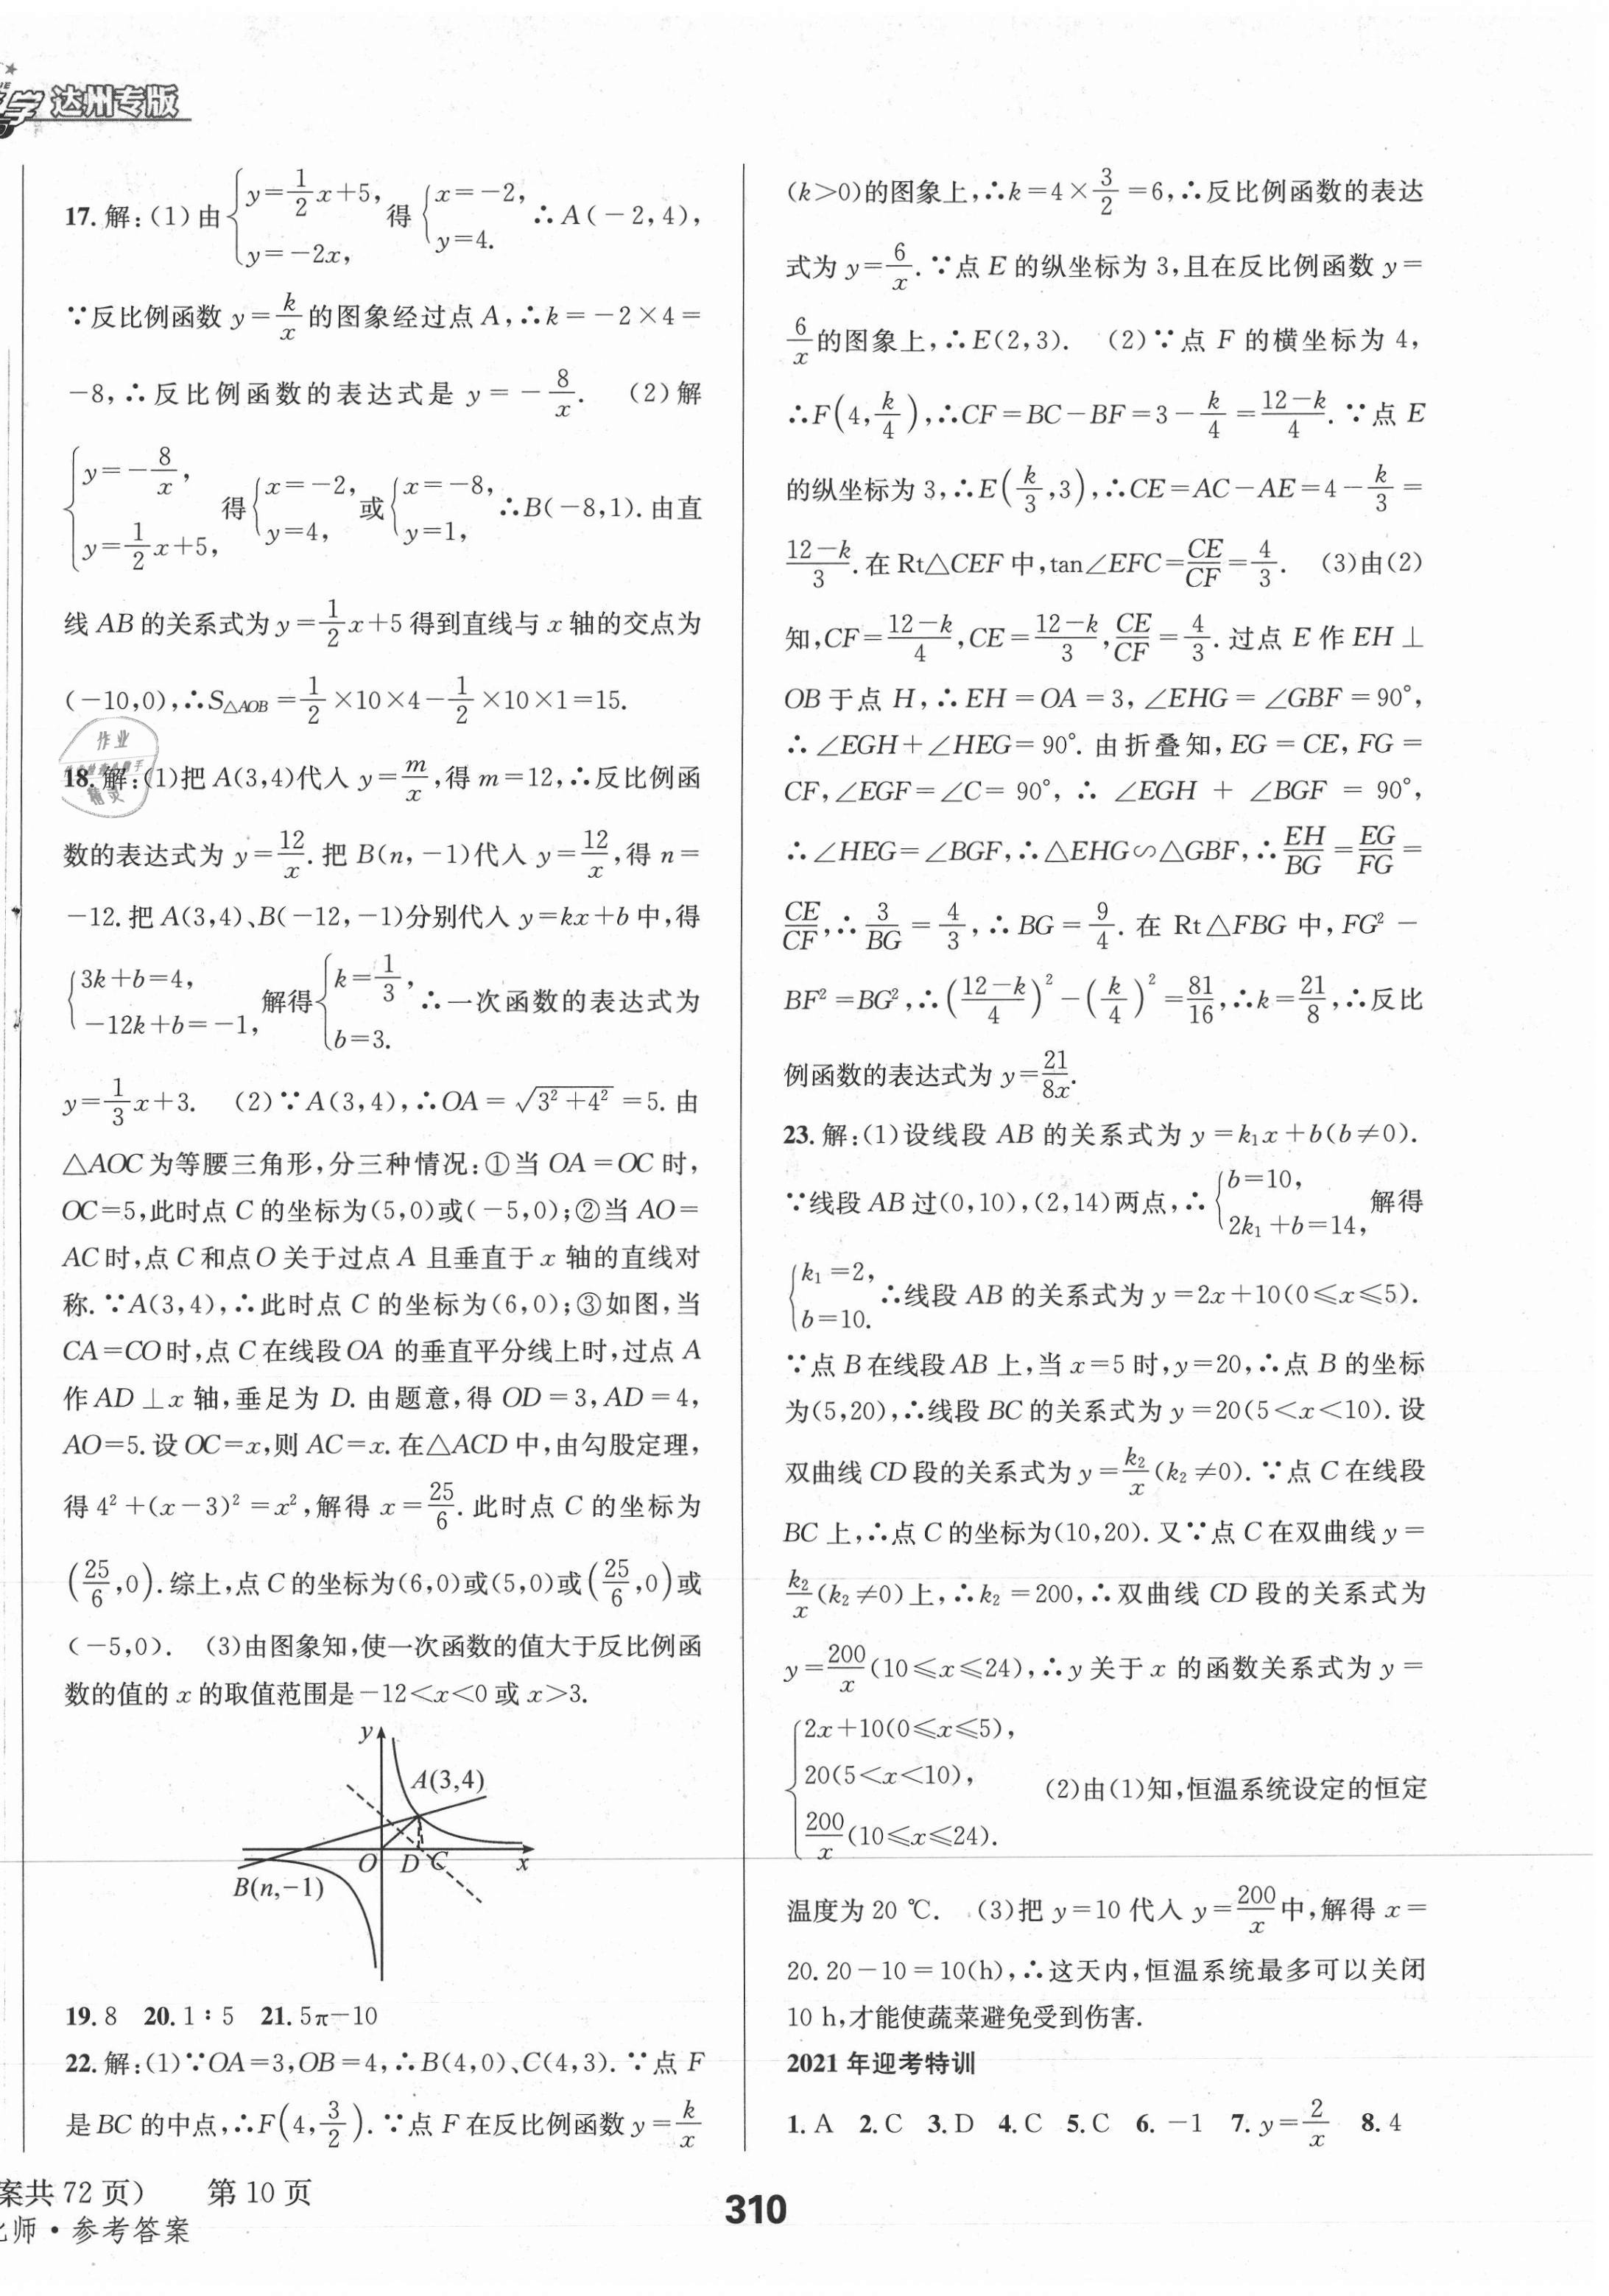 学 达州专版
17. 解:(1)由{y=1/2x+5, y=-2x, 得{x=-2, y=4. ∴A(-2,4),
∵反比例函数 y=k/x的图象经过点A,∴k=-2×4=
-8,∴反比例函数的表达式是 y=-8/x. (2)解
{y=-8/x, y=1/2x+5, 得{x=-2, y=4, 或{x=-8, y=1, ∴B(-8,1).由直
线AB的关系式为y=1/2x+5得到直线与x轴的交点为
(-10,0),∴S△AOB=1/2×10×4-1/2×10×1=15.
作业
精灵
18. 解:(1)把A(3,4)代入 y=m/x,得m=12,∴反比例函
数的表达式为 y=12/x.把B(n,-1)代入 y=12/x,得n=
-12.把A(3,4)、B(-12,-1)分别代入 y=kx+b中,得
{3k+b=4, -12k+b=-1, 解得{k=1/3, b=3. ∴一次函数的表达式为
y=1/3x+3. (2)∵A(3,4),∴OA=√(3²+4²)=5.由
△AOC为等腰三角形,分三种情况:①当OA=OC时,
OC=5,此时点C的坐标为(5,0)或(-5,0);②当AO=
AC时,点C和点O关于过点A且垂直于x轴的直线对
称.∵A(3,4),∴此时点C的坐标为(6,0);③如图,当
CA=CO时,点C在线段OA的垂直平分线上时,过点A
作AD⊥x轴,垂足为D.由题意,得OD=3,AD=4,
AO=5.设OC=x,则AC=x.在△ACD中,由勾股定理,
得4²+(x-3)²=x²,解得x=25/6.此时点C的坐标为
(25/6,0).综上,点C的坐标为(6,0)或(5,0)或(25/6,0)或
(-5,0). (3)由图象知,使一次函数的值大于反比例函
数的值的x的取值范围是-12<x<0或x>3.
y
A(3,4)
O D C x
B(n,-1)
19. 8 20. 1∶5 21. 5π-10
22. 解:(1)∵OA=3,OB=4,∴B(4,0)、C(4,3).∵点F
是BC的中点,∴F(4,3/2).∵点F在反比例函数y=k/x
(k>0)的图象上,∴k=4×3/2=6,∴反比例函数的表达
式为y=6/x.∵点E的纵坐标为3,且在反比例函数y=
6/x的图象上,∴E(2,3). (2)∵点F的横坐标为4,
∴F(4,k/4),∴CF=BC-BF=3-k/4=(12-k)/4.∵点E
的纵坐标为3,∴E(k/3,3),∴CE=AC-AE=4-k/3=
(12-k)/3.在Rt△CEF中,tan∠EFC=CE/CF=4/3. (3)由(2)
知,CF=(12-k)/4,CE=(12-k)/3,CE/CF=4/3.过点E作EH⊥
OB于点H,∴EH=OA=3,∠EHG=∠GBF=90°,
∴∠EGH+∠HEG=90°.由折叠知,EG=CE,FG=
CF,∠EGF=∠C=90°,∴∠EGH+∠BGF=90°,
∴∠HEG=∠BGF,∴△EHG∽△GBF,∴EH/BG=EG/FG=
CE/CF,∴3/BG=4/3,∴BG=9/4.在Rt△FBG中,FG²-
BF²=BG²,∴((12-k)/4)²-(k/4)²=81/16,∴k=21/8,∴反比
例函数的表达式为y=21/8x.
23. 解:(1)设线段AB的关系式为y=k₁x+b(b≠0).
∵线段AB过(0,10),(2,14)两点,∴{b=10, 2k₁+b=14, 解得
{k₁=2, b=10. ∴线段AB的关系式为y=2x+10(0≤x≤5).
∵点B在线段AB上,当x=5时,y=20,∴点B的坐标
为(5,20),∴线段BC的关系式为y=20(5<x<10).设
双曲线CD段的关系式为y=k₂/x(k₂≠0).∵点C在线段
BC上,∴点C的坐标为(10,20).又∵点C在双曲线y=
k₂/x(k₂≠0)上,∴k₂=200,∴双曲线CD段的关系式为
y=200/x(10≤x≤24),∴y关于x的函数关系式为y=
{2x+10(0≤x≤5), 20(5<x<10), 200/x(10≤x≤24). (2)由(1)知,恒温系统设定的恒定
温度为20 ℃. (3)把y=10代入y=200/x中,解得x=
20.20-10=10(h),∴这天内,恒温系统最多可以关闭
10 h,才能使蔬菜避免受到伤害.
2021年迎考特训
1. A 2. C 3. D 4. C 5. C 6. -1 7. y=2/x 8. 4
案共72页) 第10页
310
师·参考答案